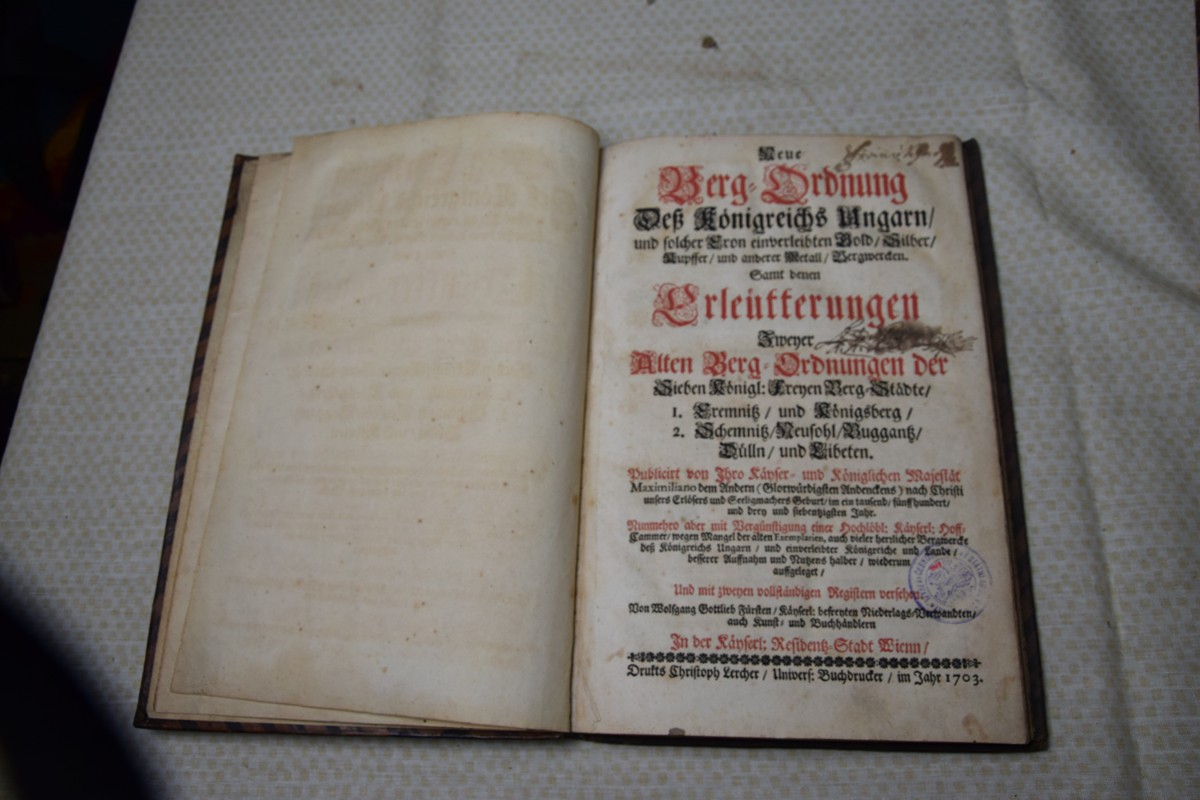 Neue
Berg-Ordnung
Deß Königreichs Ungarn/
und solcher Cron einverleibten Gold/Silber/
Kupffer/und anderer Metall/Bergwercken.
Samt denen
Erleütterungen
Zweyer
Alten Berg-Ordnungen der
Sieben Königl: Freyen Berg-Städte/
1. Cremnitz/ und Königsberg/
2. Schemnitz/Neusohl/Buggantz/
Dülln/ und Libeten.
Publicirt von Ihro Käyser- und Königlichen Majestät
Maximiliano dem Andern (Glorwürdigsten Andenckens) nach Christi
unsers Erlösers und Seeligmachers Geburt/im ein tausend/fünffhundert/
und drey und siebentzigsten Jahr.
Nunmehro aber mit Vergünstigung einer Hochlöbl: Käyserl: Hoff-
Cammer/wegen Mangel der alten Exemplarien, auch vieler herrlicher Bergwercke
deß Königreichs Ungarn/ und einverleibter Königreiche und Lande/
besserer Auffnahm und Nutzens halber/ wiederum
auffgeleget/
Und mit zweyen vollständigen Registern versehen.
Von Wolfgang Gottlieb Fürsten/Käyserl: befreyten Niederlags-Verwandten/
auch Kunst- und Buchhändlern
In der Käyserl: Residentz-Stadt Wienn/
Druckts Christoph Lercher/ Univers: Buchdrucker/ im Jahr 1703.